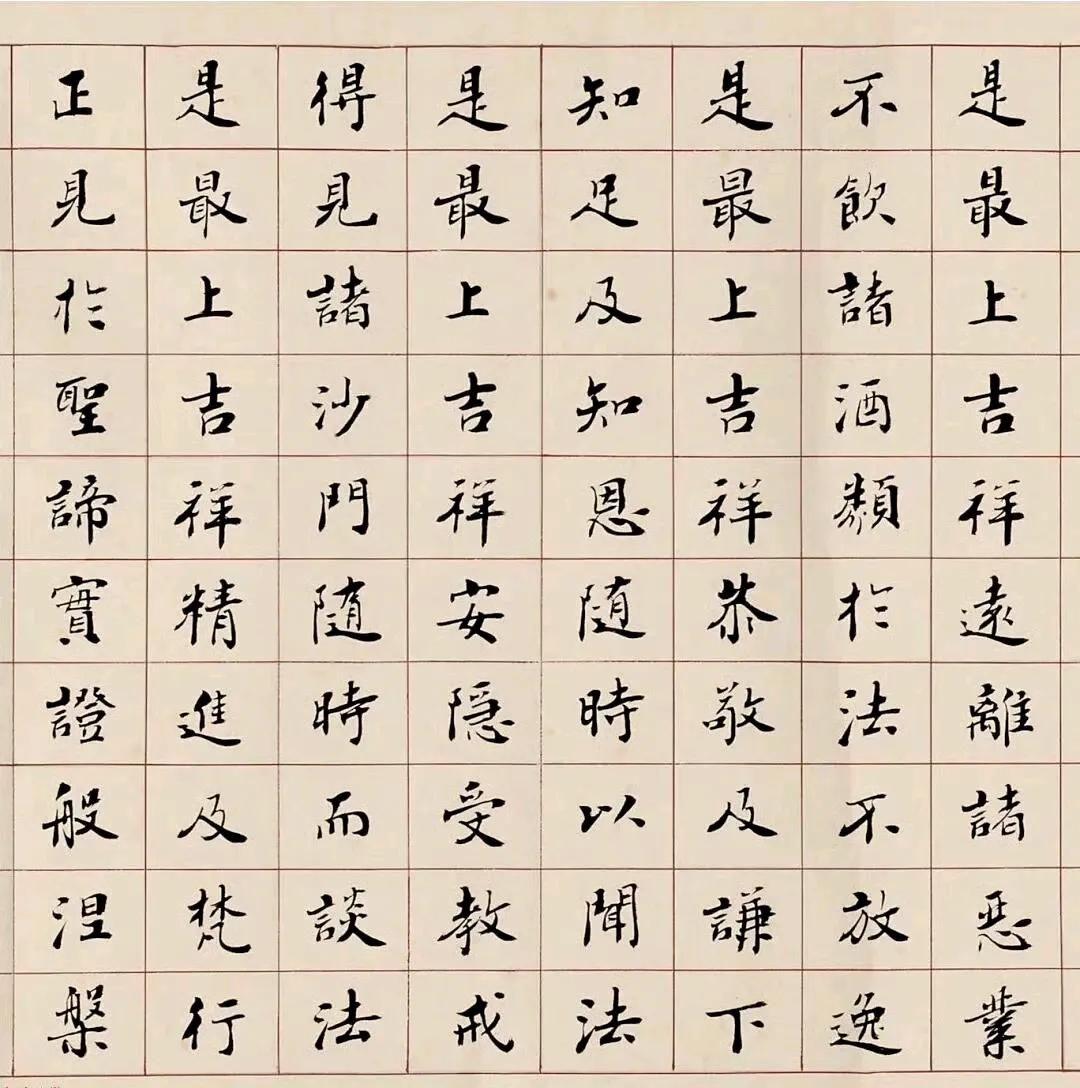 是最上吉祥遠離諸惡業
不飲諸酒類於法不放逸
是最上吉祥恭敬及謙下
知足及知恩隨時以聞法
是最上吉祥安隱受教戒
得見諸沙門隨時而談法
是最上吉祥精進及梵行
正見於聖諦實證般涅槃